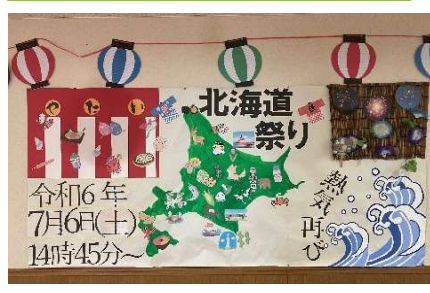 北海道
祭り
令和6年
7月6日(土)
14時45分～
熱気再び